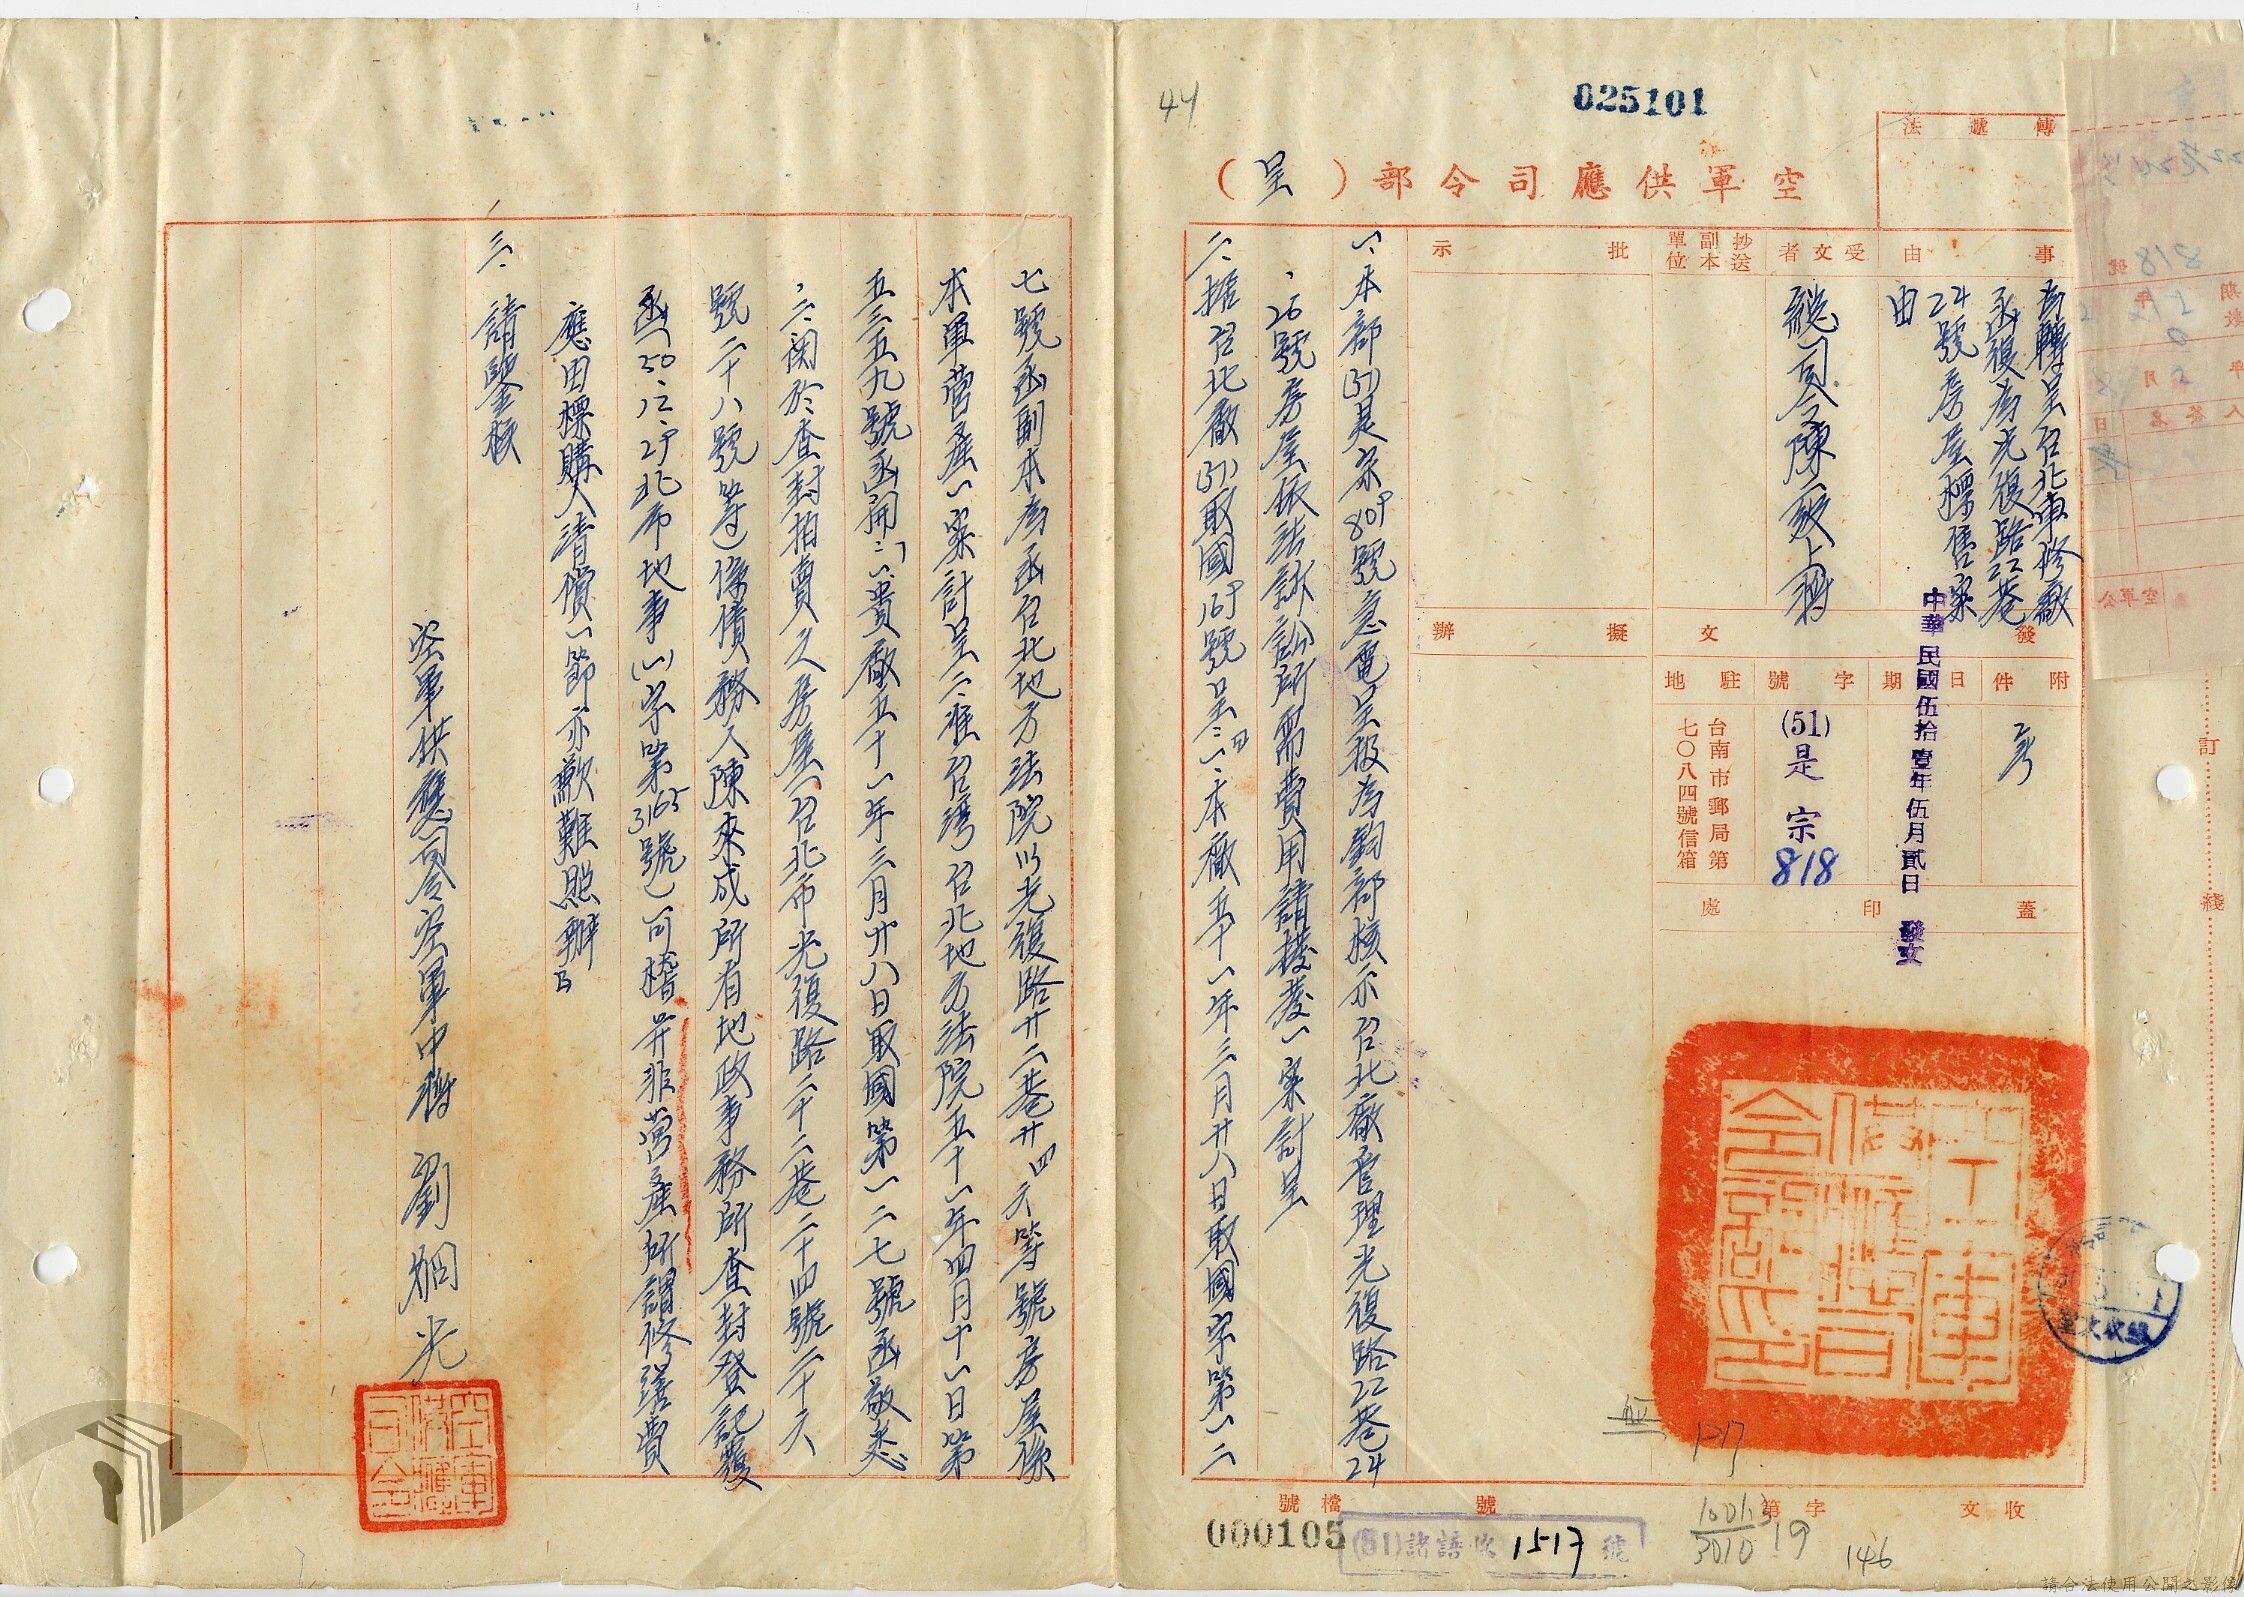 025101
44
法遞轉
空軍供應司令部（呈）
事由
為轉呈台北電修廠
函復為光復路22巷
24號房屋標售案
由
受文者
總司令陳二級上將
抄送副本單位
批示
擬辦
發文
附件
日期
中華民國伍拾壹年伍月貳日 發文
字號
(51)是宗818
駐地
台南市郵局第
七〇八四號信箱
蓋印處
一、本部(51)是宗809號急電呈報為鈞部核示台北廠管理光復路22巷24
、26號房屋依法訴訟所需費用請撥發一案計呈
二、據台北廠(51)取國169號呈：「一、本廠五十一年三月廿八日取國字第一二
七號函副本為函台北地方法院以光復路廿二巷廿四六等號房屋係
本軍營產一案計呈二、准台灣台北地方法院五十一年四月十一日第
五三五九號函開：「一、貴廠五十一年三月廿八日取國第一二七號函敬悉
、二、關於查封拍賣之房屋（台北市光復路二十二巷二十四號二十六
號二十八號等）係債務人陳來成所有地政事務所查封登記覆
函（50、12、29北市地事(一)字第3165號）可稽并非營產所謂修繕費
應由標購人清償一節亦歉難照辦」
三、請鑒核
空軍供應司令空軍中將劉炯光
訂
綫
收文
字第
號
檔號
000105
(51)諸語收1517號
146
請合法使用公開之影像